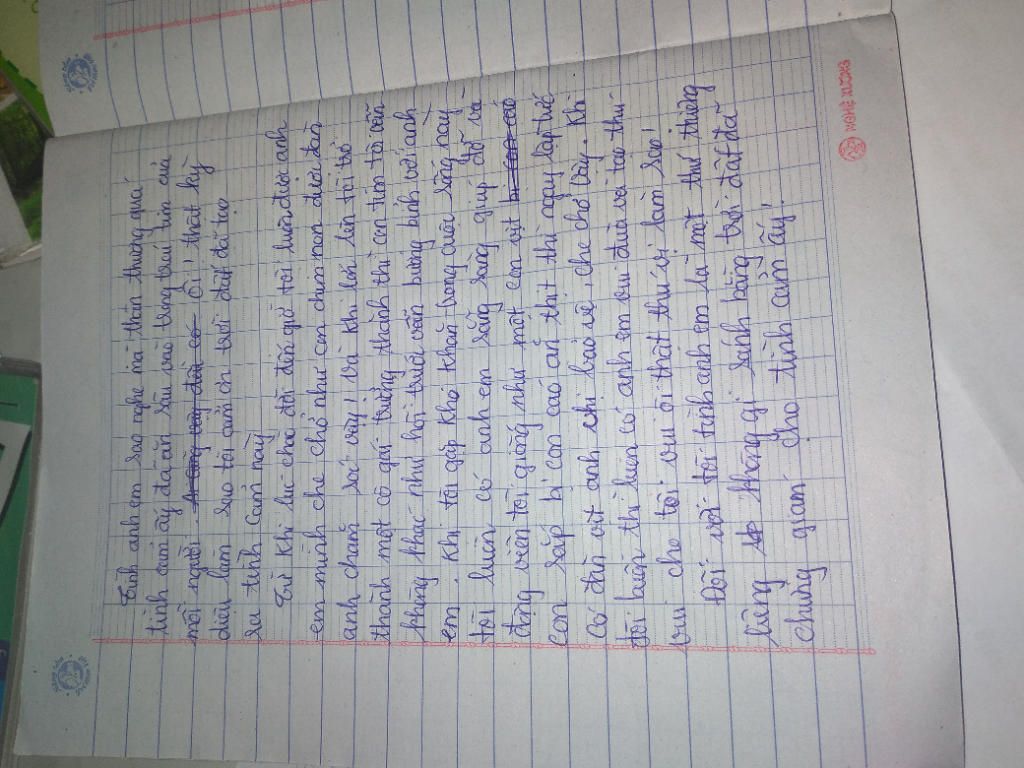 Tình anh em sao nghe mà thân thương quá
tình cảm ấy đã ăn sâu vào trong trái tim của
mỗi người. Ôi! thật kỳ
diệu làm sao tôi cảm ơn trời đất đã tạo
ra tình cảm này
Từ khi lúc chào đời đến giờ tôi luôn được anh
em mình che chở như con chim non được đàn
anh chăm sóc vậy! và khi lớn lên tôi trở
thành một cô gái trưởng thành thì con tim tôi vẫn
không khác như hồi bé vẫn bướng bỉnh với anh
em. Khi tôi gặp khó khăn trong cuộc sống này
tôi luôn có anh em sẵn sàng giúp đỡ và
động viên tôi giống như một con vịt
con sắp bị con cáo ăn thịt thì ngay lập tức
có đàn vịt anh chị bảo vệ, che chở vậy. Khi
tôi buồn thì luôn có anh em vui đùa và tạo thú
vui cho tôi vui ôi thật thú vị làm sao!
Đối với tôi tình anh em là một thứ thiêng
liêng không gì sánh bằng trời đất đã
chứng giám cho tình cảm ấy!
NGHỆ XUCCHS